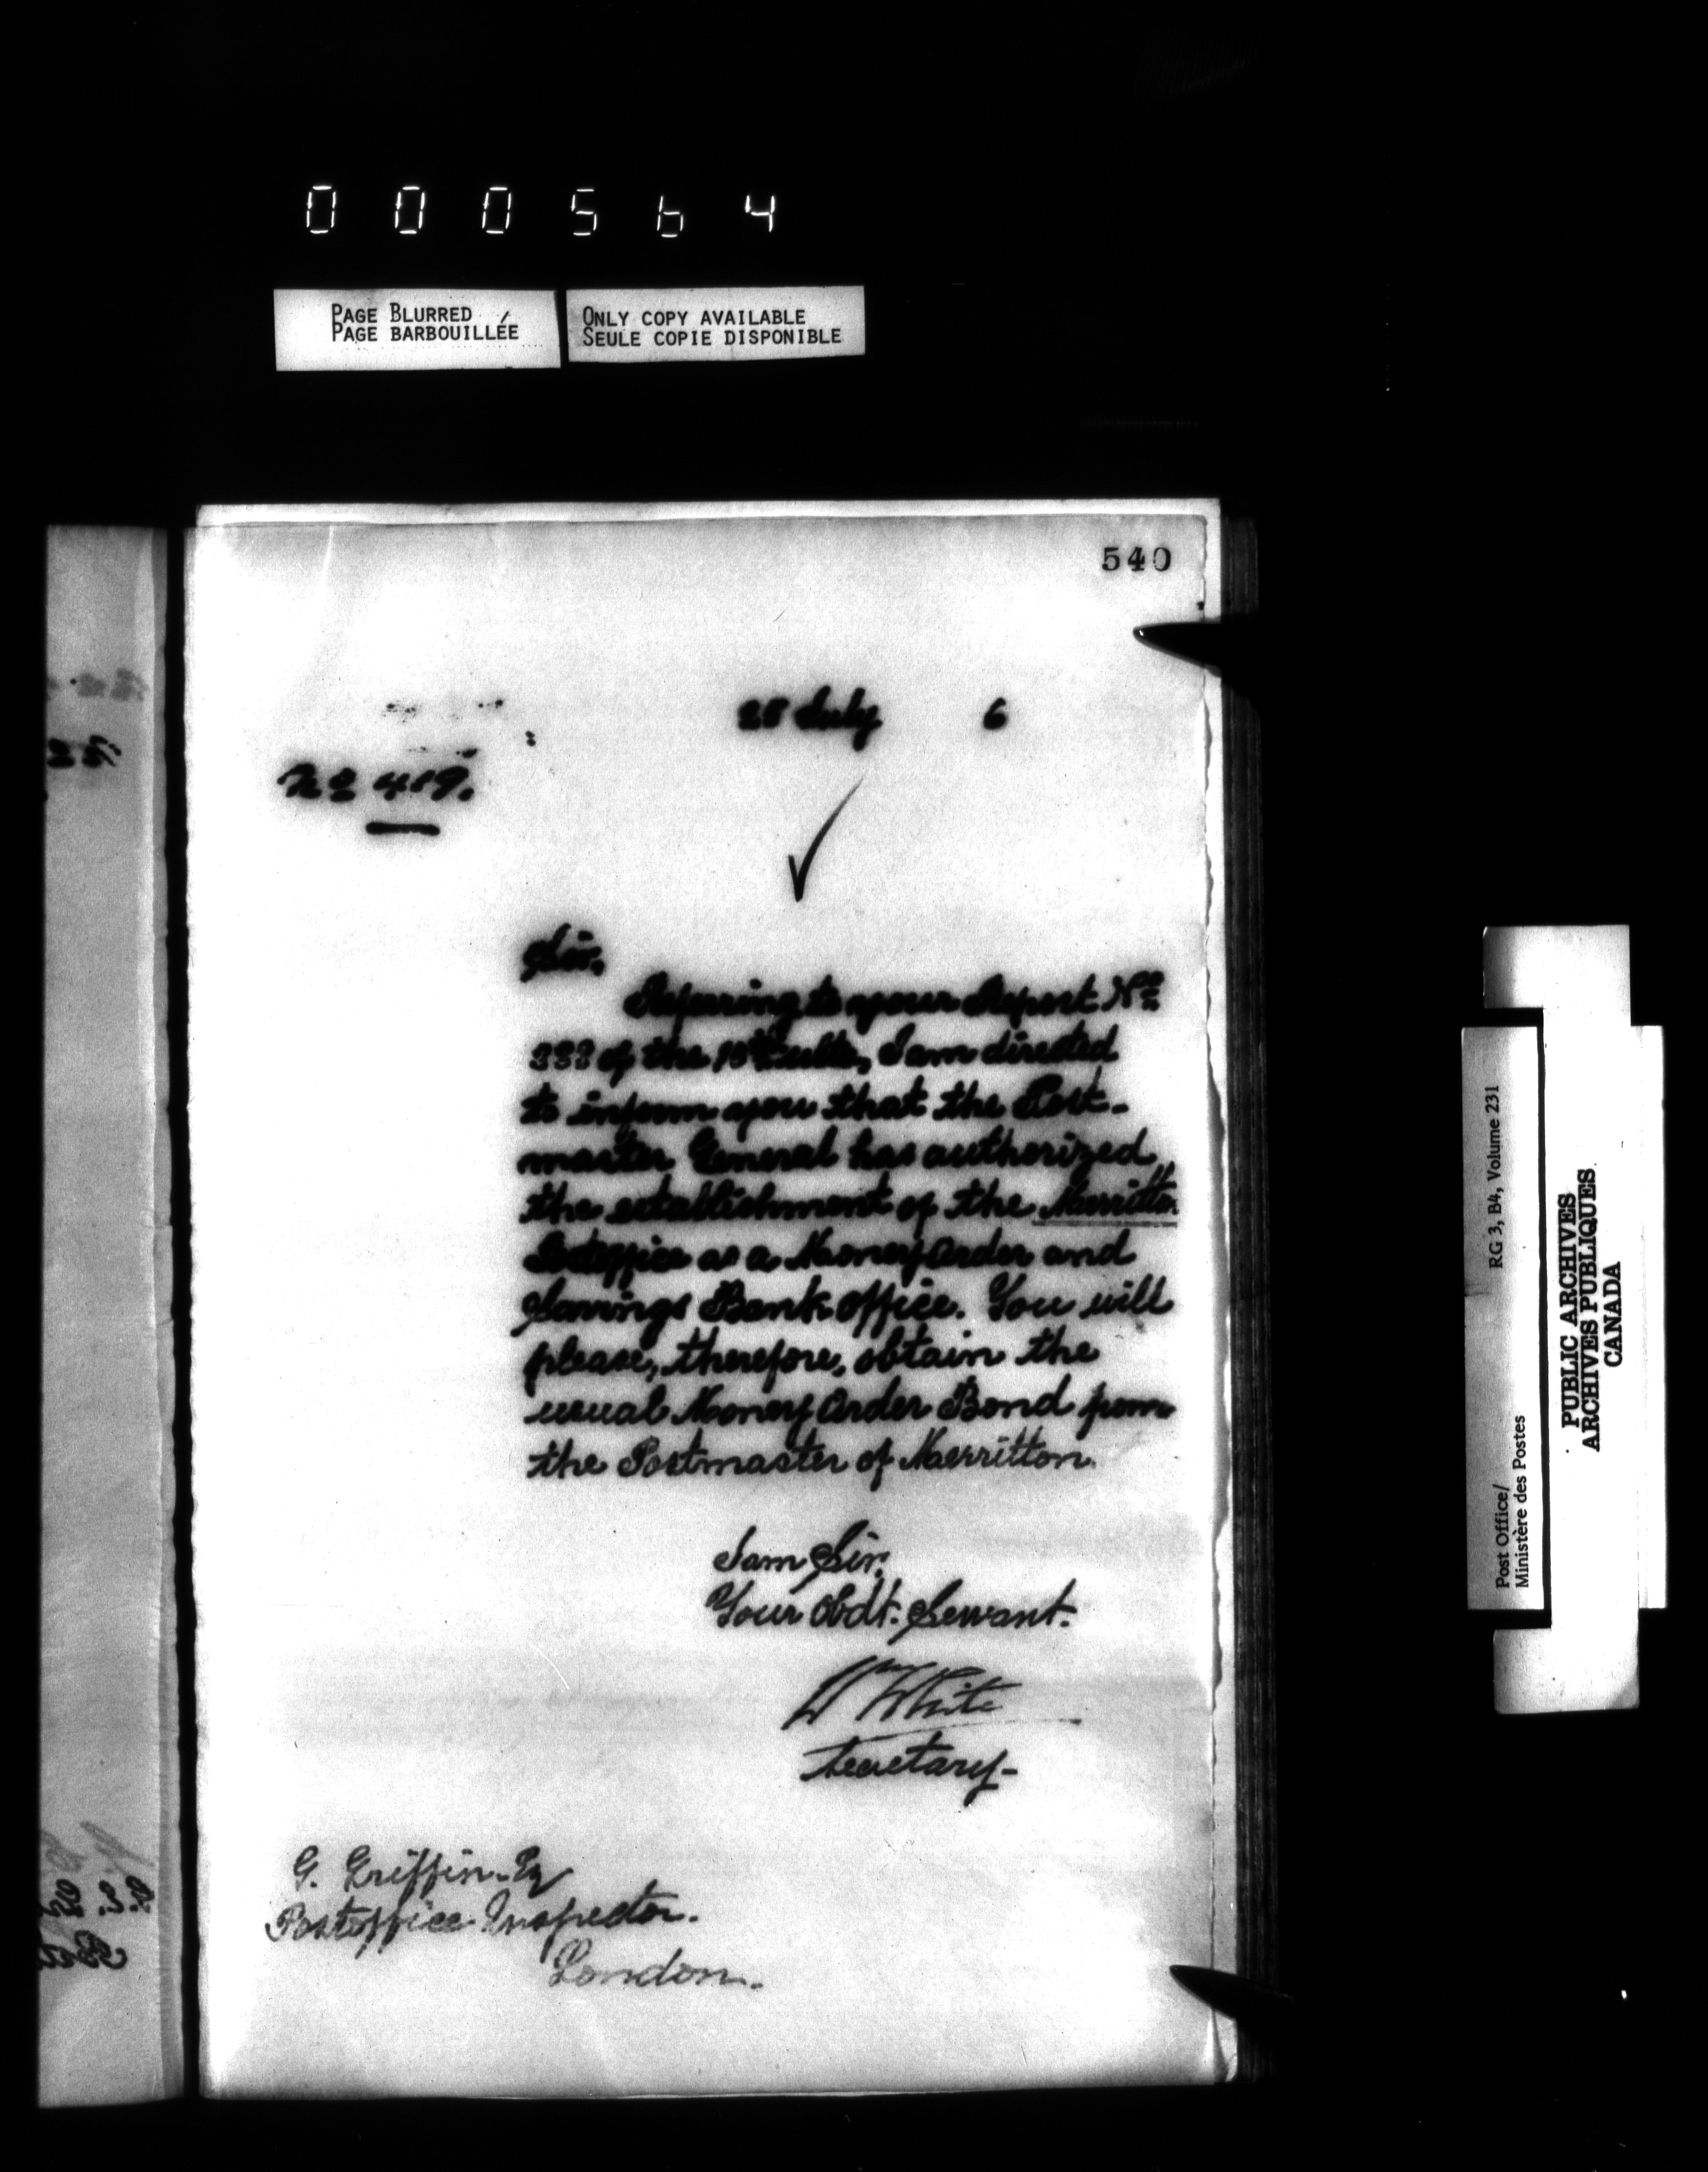 000564
PAGE BLURRED
PAGE BARBOUILLÉE
ONLY COPY AVAILABLE
SEULE COPIE DISPONIBLE
540
July 6
No 419.
Sir,
Referring to your Report No
333 of the ulto, I am directed
to inform you that the Post-
master General has authorized
the establishment of the Merritton
Postoffice as a Money Order and
Savings Bank Office. You will
please, therefore, obtain the
usual Money Order Bond from
the Postmaster of Merritton.
I am Sir,
Your Obdt. Servant.
Wm White
Secretary-
G. Griffin Esq
Postoffice Inspector.
London.
Post Office/
Ministère des Postes
RG 3, B4, Volume 231
PUBLIC ARCHIVES
ARCHIVES PUBLIQUES
CANADA